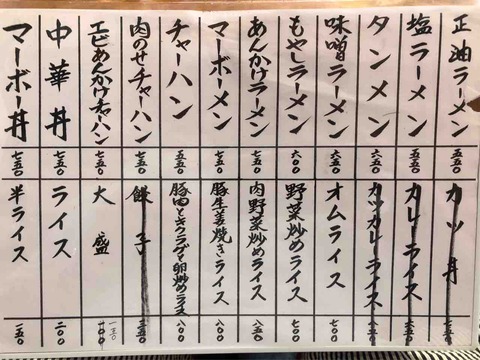 正油ラーメン 五五〇
塩ラーメン 五五〇
タンメン 六五〇
味噌ラーメン 六五〇
もやしラーメン 六〇〇
あんかけラーメン 七五〇
マーボーメン 七五〇
チャーハン 五五〇
肉のせチャーハン 七五〇
エビあんかけチャーハン 七五〇
中華丼 七五〇
マーボー丼 七五〇
カツ丼
カレーライス
カツカレーライス
オムライス 七〇〇
野菜炒めライス 七〇〇
肉野菜炒めライス 八五〇
豚生姜焼きライス 八〇〇
豚肉とキクラゲの卵炒めライス 八〇〇
餃子
大盛
ライス 二〇〇
半ライス 一五〇